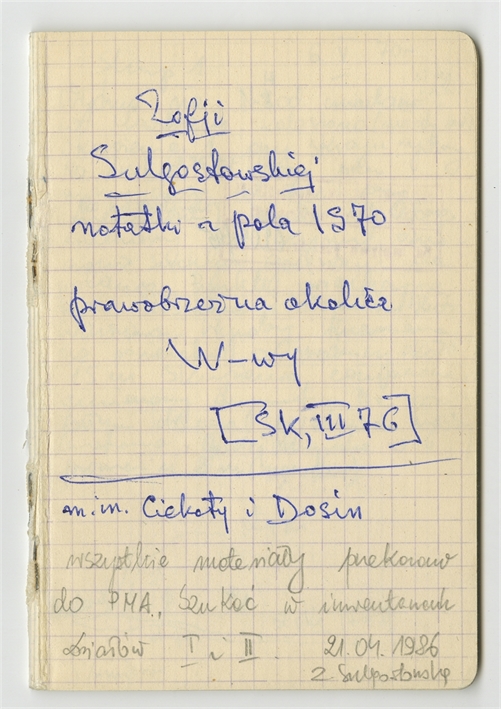 Zofji
Sulgostowskiej
notatki z pola 1970
prawobrzeżna okolica
W-wy
[SK, III 76]
m.in. Ciekoty i Dosin
wszystkie materiały przekazano
do PMA, Szukać w inwentarzach
działów I i II. 21.04.1986
Z. Sulgostowska